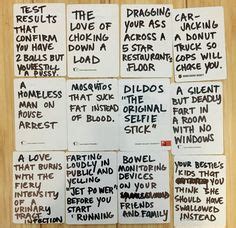 TEST
RESULTS
THAT
CONFIRM
YOU HAVE
2 BALLS BUT
YOU'RE STILL
A PUSSY.
THE
LOVE OF
CHOKING
DOWN A
LOAD
DRAGGING
YOUR ASS
ACROSS A
5 STAR
RESTAURANTS
FLOOR
CAR-
JACKING A
DONUT
TRUCK SO
COPS WILL
CHASE YOU.
A
HOMELESS
MAN ON
HOUSE
ARREST
MOSQUITOS
THAT SUCK
FAT INSTEAD
OF BLOOD.
DILDOS
"THE
ORIGINAL
SELFIE
STICK"
A SILENT
BUT DEADLY
FART IN A
ROOM WITH
NO WINDOWS
A LOVE
THAT BURNS
WITH THE
FIERY
INTENSITY
OF A
URINARY
TRACT
INFECTION
FARTING
LOUDLY IN
PUBLIC AND
YELLING
"JET POWER"
BEFORE YOU
START
RUNNING
BOWEL
MONITORING
DEVICES
ON YOUR
FRIENDS
AND FAMILY
YOUR BESTIE'S
KIDS THAT
YOU THINK
SHE
SHOULD HAVE
SWALLOWED
INSTEAD